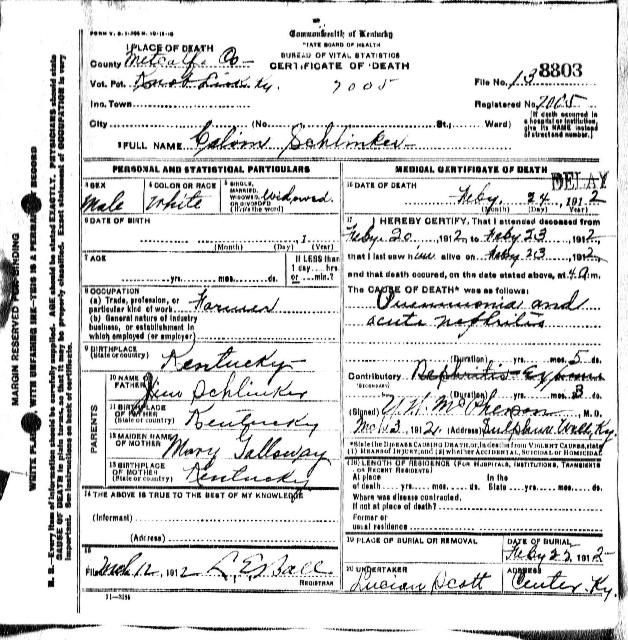 FORM V. S. 1-
Commonwealth of Kentucky
STATE BOARD OF HEALTH
BUREAU OF VITAL STATISTICS
CERTIFICATE OF DEATH
1 PLACE OF DEATH
County Metcalfe Co
Vot. Pct. Knob Lick Ky. 7005
File No. 13 8803
Inc. Town
Registered No. 7005
City (No. St.; Ward)
(If death occurred in a hospital or institution, give its NAME instead of street and number.)
2 FULL NAME Schlinker
PERSONAL AND STATISTICAL PARTICULARS
3 SEX Male
4 COLOR OR RACE White
5 SINGLE, MARRIED, WIDOWED, OR DIVORCED (Write the word) Widowed
6 DATE OF BIRTH
(Month) (Day) 1 (Year)
7 AGE
yrs. mos. ds.
If LESS than 1 day....hrs or....min.?
8 OCCUPATION
(a) Trade, profession, or particular kind of work Farmer
(b) General nature of industry business, or establishment in which employed (or employer)
9 BIRTHPLACE (State or country) Kentucky
PARENTS
10 NAME OF FATHER Jim Schlinker
11 BIRTHPLACE OF FATHER (State or country) Kentucky
12 MAIDEN NAME OF MOTHER Mary Galloway
13 BIRTHPLACE OF MOTHER (State or country) Kentucky
14 THE ABOVE IS TRUE TO THE BEST OF MY KNOWLEDGE
(Informant)
(Address)
15
Filed Mch 12, 1912 L. E. Ball
REGISTRAR
11-3184
MEDICAL CERTIFICATE OF DEATH
DELAY
16 DATE OF DEATH
Feby. 24 1912
(Month) (Day) (Year)
17 I HEREBY CERTIFY, That I attended deceased from
Feby. 20 1912, to Feby 23 1912
that I last saw him alive on Feby 23 1912
and that death occured, on the date stated above, at 4 a m.
The CAUSE OF DEATH* was as follows:
Pneumonia and
acute nephritis
(Duration) yrs. mos. 5 ds.
Contributory Nephritis
(SECONDARY)
(Duration) yrs. mos. 3 ds.
(Signed) McPherson M. D.
Mch 3 1912 (Address) Sulphur Well, Ky.
*State the DISEASE CAUSING DEATH, or, in deaths from VIOLENT CAUSES, state (1) MEANS OF INJURY; and (2) whether ACCIDENTAL, SUICIDAL OR HOMICIDAL
18 LENGTH OF RESIDENCE (FOR HOSPITALS, INSTITUTIONS, TRANSIENTS OR RECENT RESIDENTS)
At place of death yrs. mos. ds. In the State yrs. mos. ds.
Where was disease contracted,
if not at place of death?
Former or
usual residence
19 PLACE OF BURIAL OR REMOVAL
DATE OF BURIAL
Feby 25 1912
20 UNDERTAKER
Lucian Scott
ADDRESS
Center, Ky.
MARGIN RESERVED FOR BINDING
WITH UNFADING INK—THIS IS A PERMANENT RECORD
N. B.—Every item of information should be carefully supplied. AGE should be stated EXACTLY. PHYSICIANS should state
CAUSE OF DEATH in plain terms, so that it may be properly classified. Exact statement of OCCUPATION is very
important. See instructions on back of certificate.